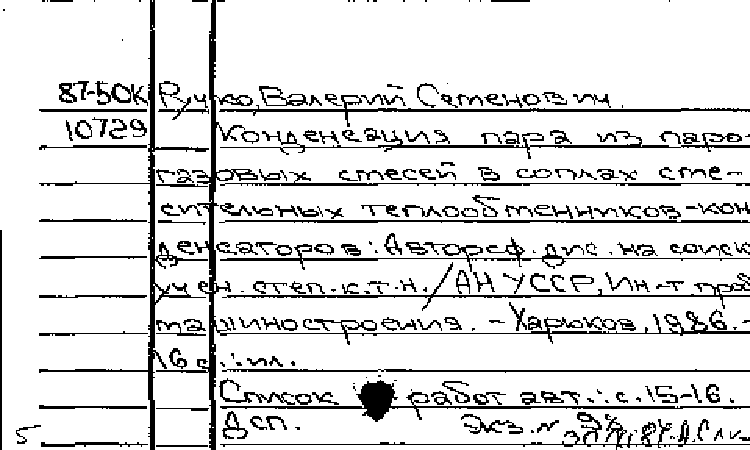 87-50К Ручко, Валерий Семенович.
10729 Конденсация пара из паро-
газовых смесей в соплах сме-
сительных теплообменников-кон
денсаторов: Автореф. дис. на соиск
учен. степ. к.т.н./АН УССР, Ин-т проб
машиностроения. - Харьков, 1986. -
16 с.: ил.
Список работ авт.: с. 15-16.
Дсп. Экз. N
5